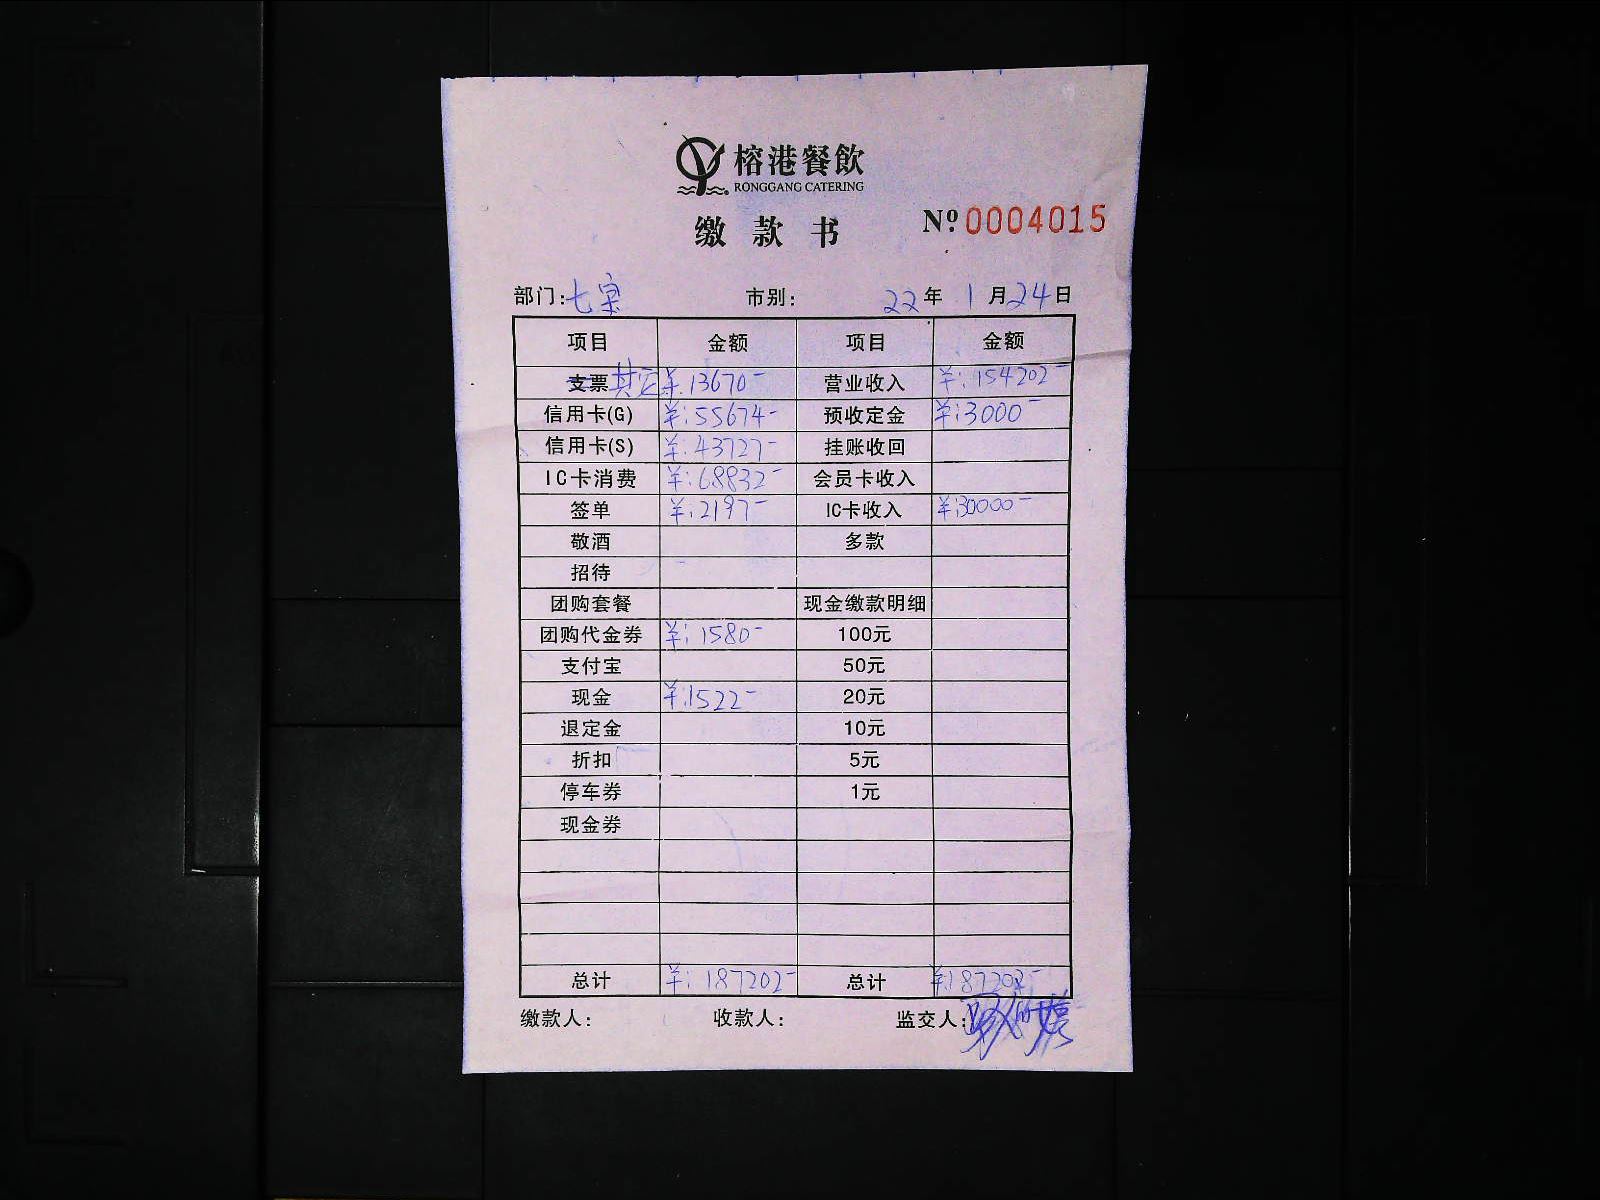 榕港餐飲
RONGGANG CATERING
缴款书 Nº 0004015
部门:七宝 市别: 22年1月24日
项目 金额 项目 金额
支票 其它 ¥:13670- 营业收入 ¥:154202-
信用卡(G) ¥:55674- 预收定金 ¥:3000-
信用卡(S) ¥:43727- 挂账收回
IC卡消费 ¥:68832- 会员卡收入
签单 ¥:2197- IC卡收入 ¥:30000-
敬酒 多款
招待
团购套餐 现金缴款明细
团购代金券 ¥:1580- 100元
支付宝 50元
现金 ¥:1522- 20元
退定金 10元
折扣 5元
停车券 1元
现金券
总计 ¥:187202- 总计 ¥:187202-
缴款人: 收款人: 监交人: